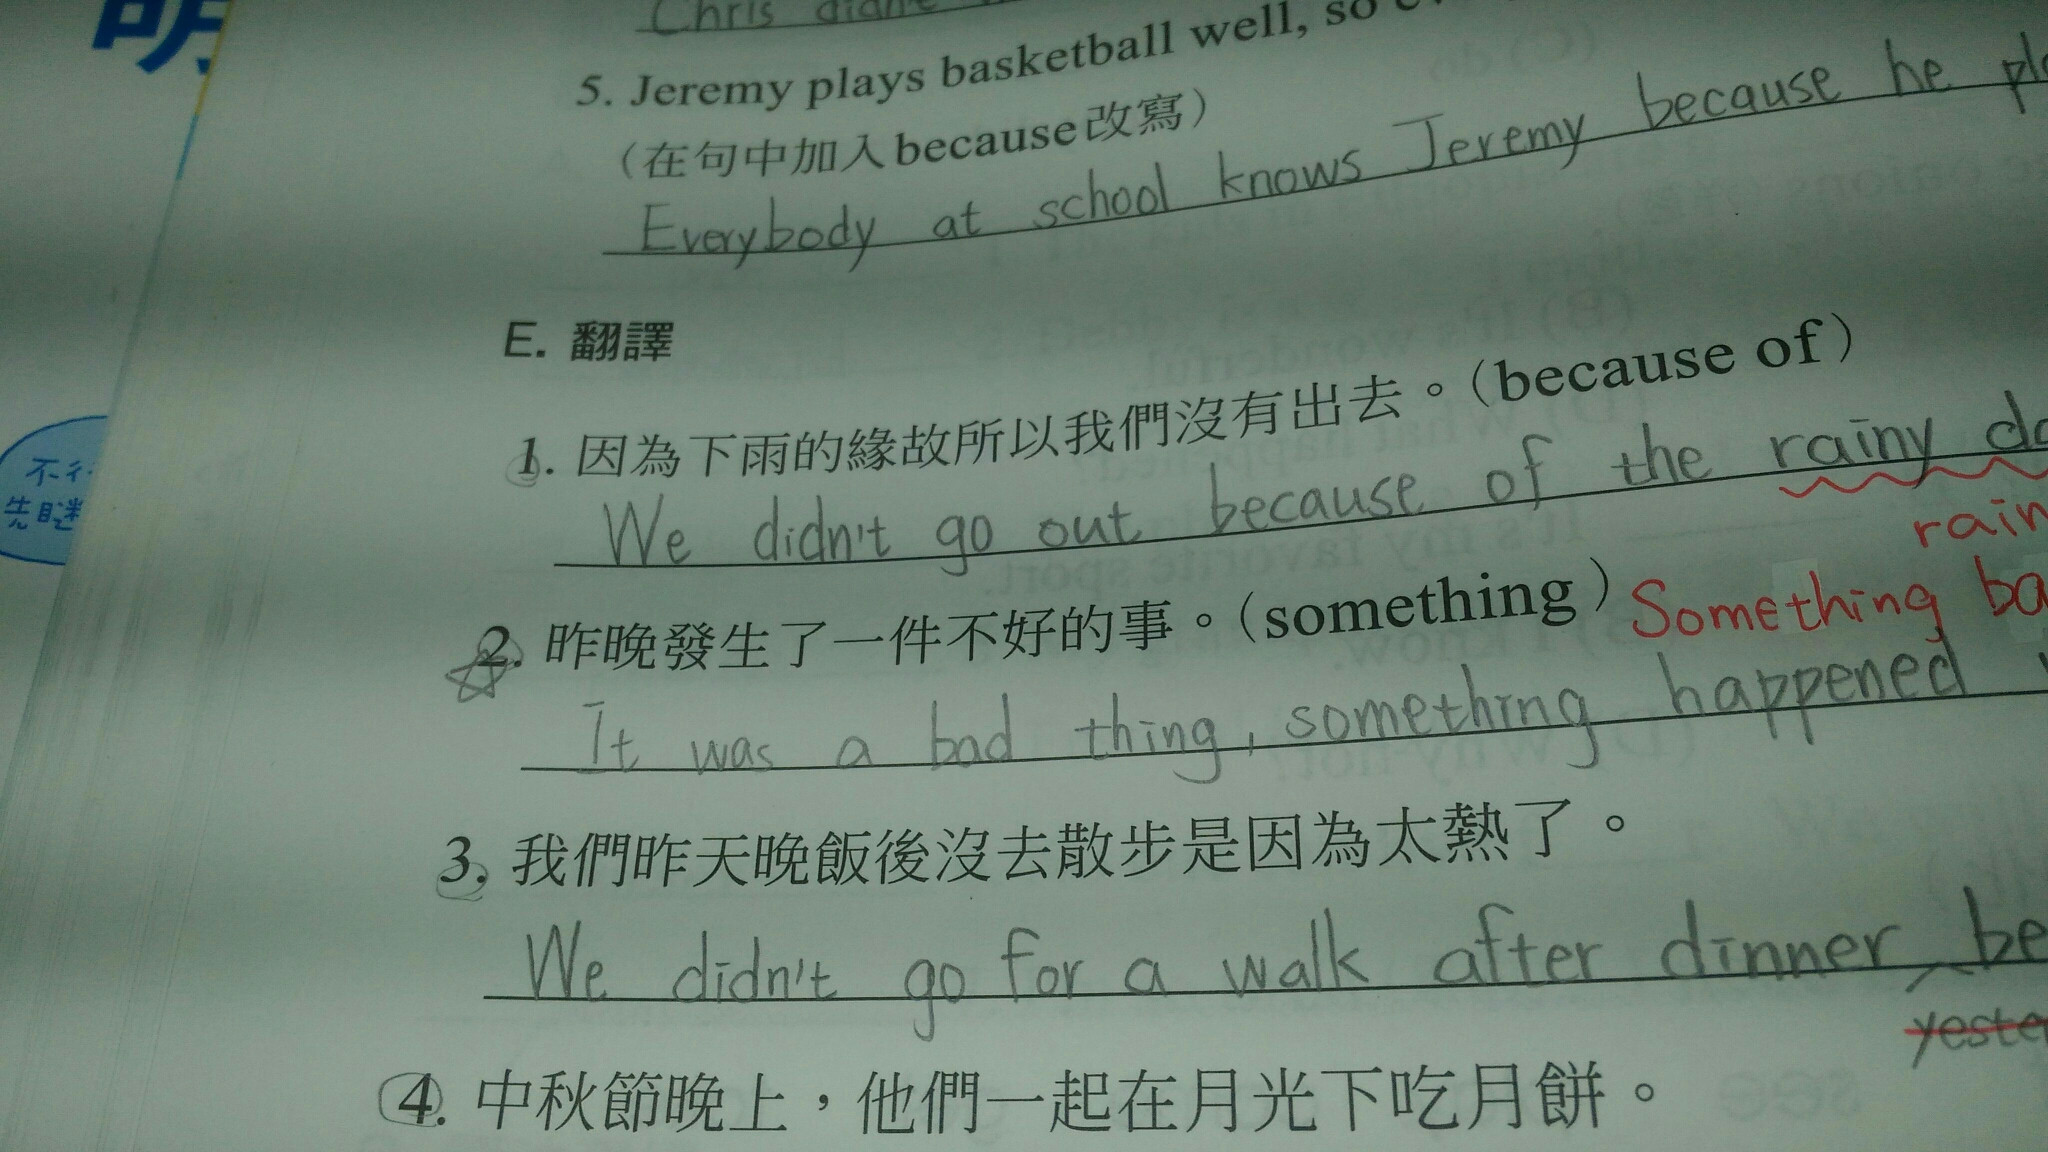 明
Chris didn't
5. Jeremy plays basketball well, so
(在句中加入because改寫)
Everybody at school knows Jeremy because he
E. 翻譯
1. 因為下雨的緣故所以我們沒有出去。(because of)
We didn't go out because of the rainy
rain
2. 昨晚發生了一件不好的事。(something) Something
It was a bad thing, something happened
3. 我們昨天晚飯後沒去散步是因為太熱了。
We didn't go for a walk after dinner
4. 中秋節晚上，他們一起在月光下吃月餅。
不行
先瞇